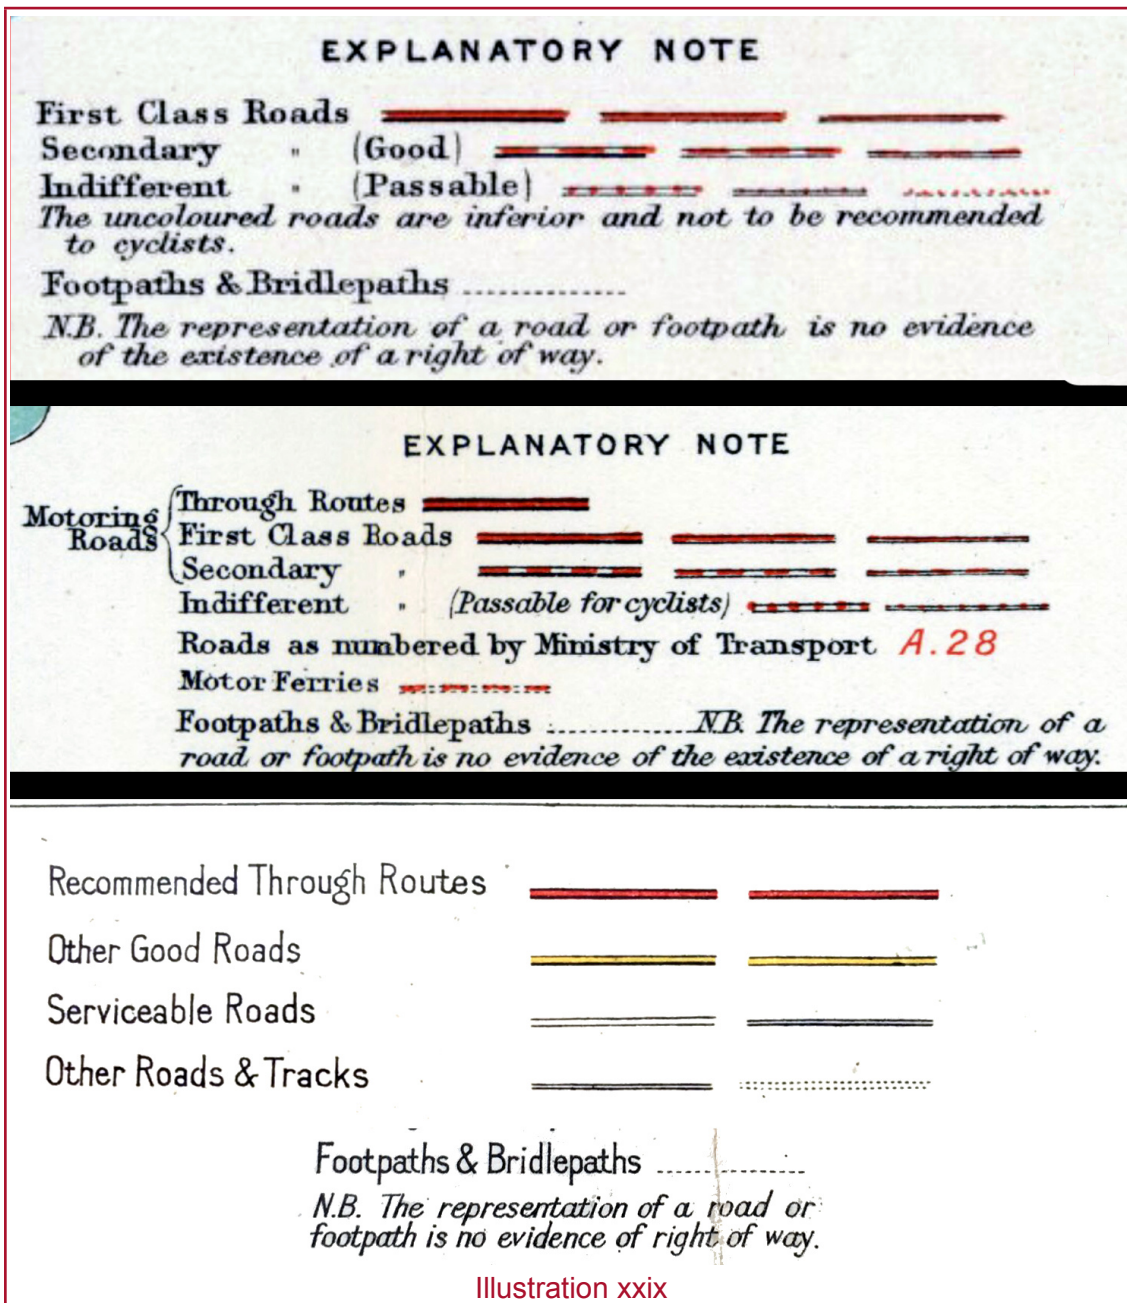 EXPLANATORY NOTE
First Class Roads
Secondary " (Good)
Indifferent " (Passable)
The uncoloured roads are inferior and not to be recommended
to cyclists.
Footpaths & Bridlepaths ...............
N.B. The representation of a road or footpath is no evidence
of the existence of a right of way.
EXPLANATORY NOTE
Motoring
Roads
Through Routes
First Class Roads
Secondary "
Indifferent " (Passable for cyclists)
Roads as numbered by Ministry of Transport A.28
Motor Ferries
Footpaths & Bridlepaths ............... N.B. The representation of a
road or footpath is no evidence of the existence of a right of way.
Recommended Through Routes
Other Good Roads
Serviceable Roads
Other Roads & Tracks
Footpaths & Bridlepaths ...............
N.B. The representation of a road or
footpath is no evidence of right of way.
Illustration xxix